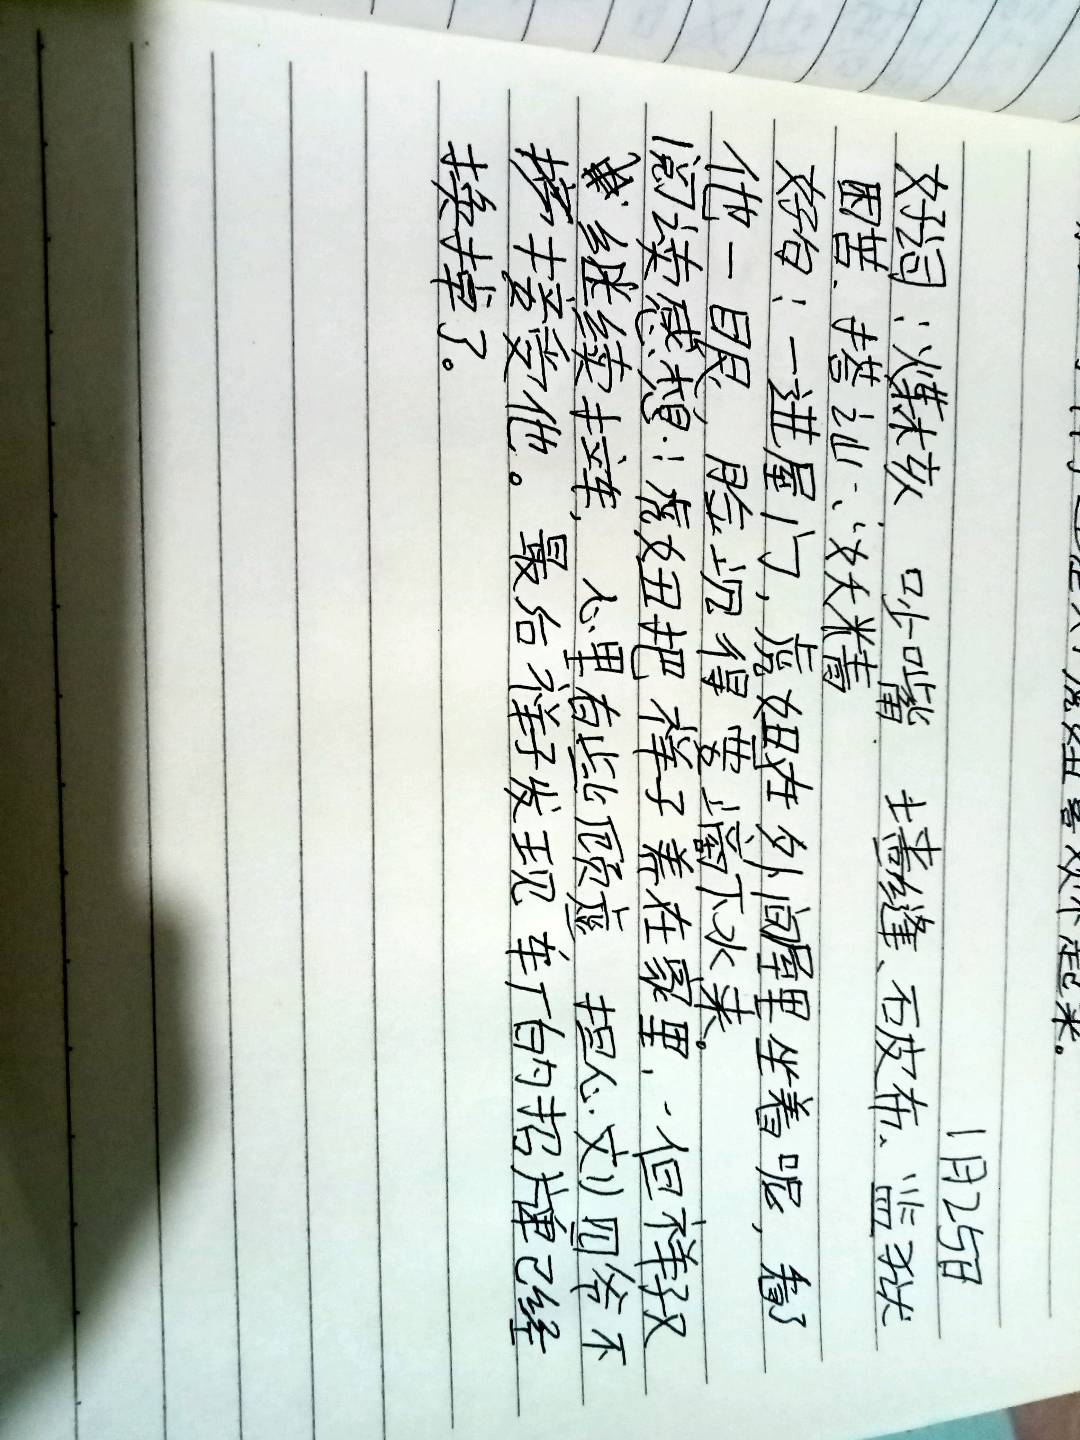 1月25日
好词：煤灰 吵嘴、墙缝、破布、监狱
困苦、搭讪、没精
好句：一进屋门，虎妞在外间里坐着呢，看了
他一眼，脸沉得要滴下水来。
阅读感想：虎妞把祥子养在家里，但祥子又
继续拉车，心里有些顾虑 担心刘四爷不
接受他。最后祥子发现车厂的招牌已经
换掉了。